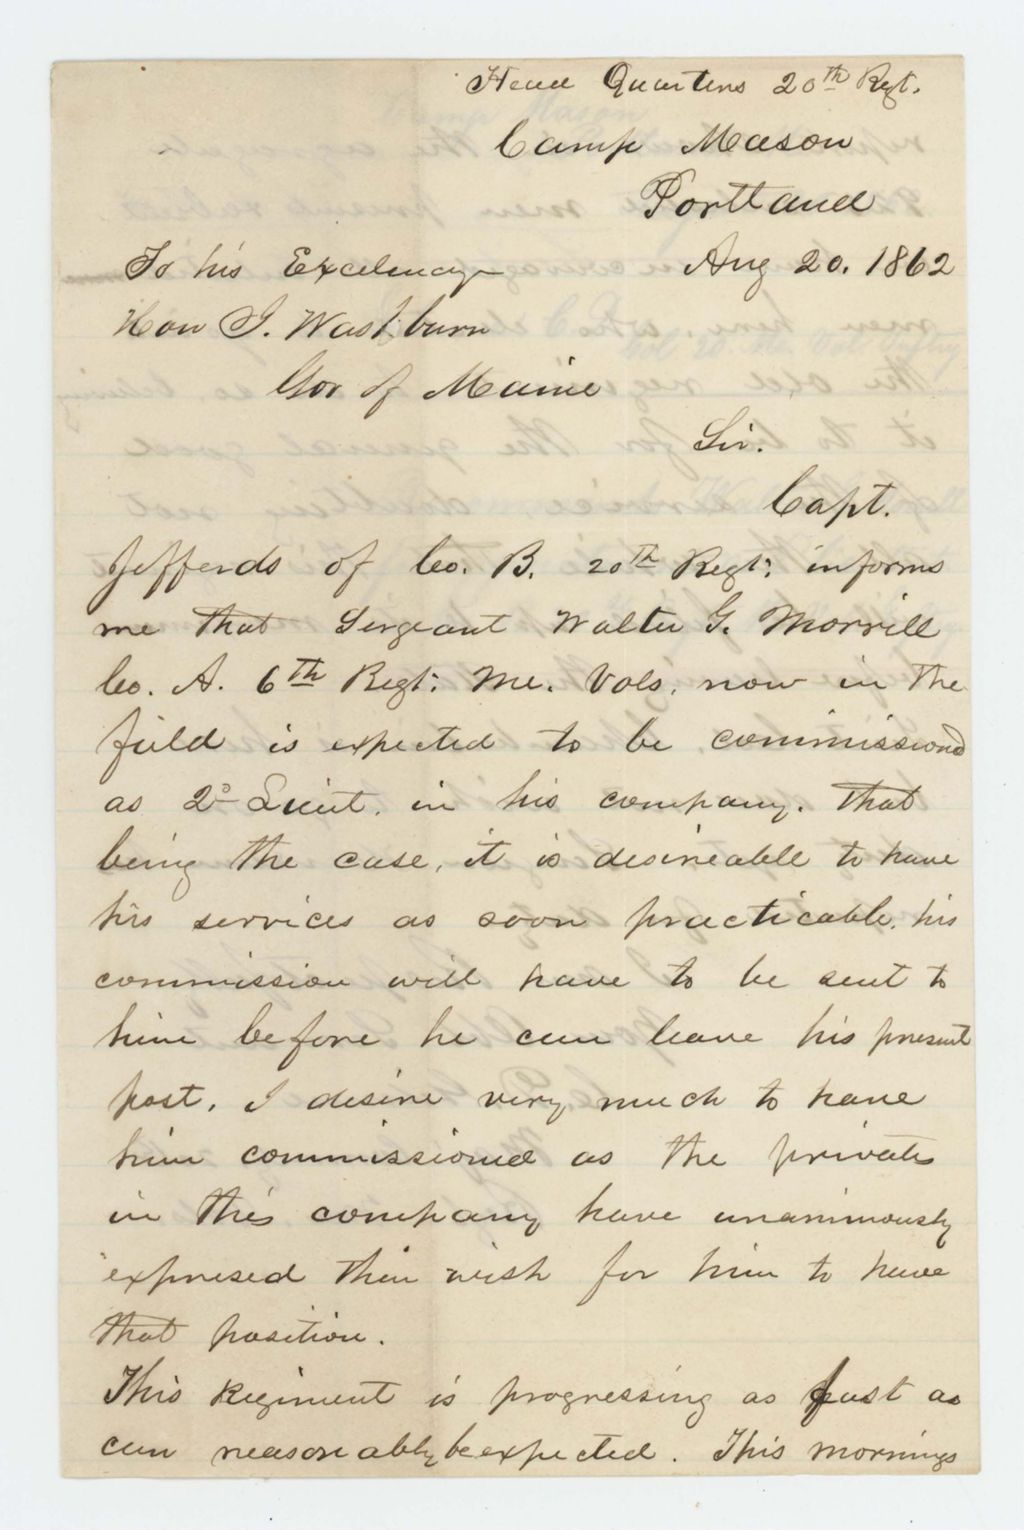 Head Quarters 20th Regt.
Camp Mason
Portland
To his Excelency Aug 20. 1862
Hon I. Washburn
Gov of Maine
Sir.
Capt.
Jefferds of Co. B. 20th Regt: informs
me that Sergeant Walter G. Morrill
Co. A. 6th Regt: Me. Vols. now in the
field is expected to be commissiond
as 2d Lieut. in his company. That
being the case, it is desireable to have
his services as soon practicable. his
commission will have to be sent to
him before he can leave his present
post. I desire very much to have
him commissioned as the privates
in this company have unanimously
expresed their wish for him to have
that position.
This Regiment is progressing as fast as
can reasonably be expected. This mornings